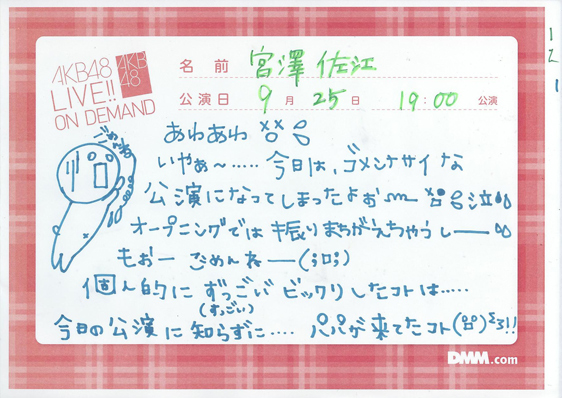 AKB48
LIVE!!
ON DEMAND
AKB
48
名前 宮澤佐江
公演日 9月25日 19:00 公演
12
1
ごめんね
あわあわ
いやぁ～……今日は、ゴメンナサイな
公演になってしまったよぉ 泣
オープニングでは振りまちがえちゃうしーー
もおー ごめんねー(;ロ;)
個人的にずっごいビックリしたコトは……
(すっごい)
今日の公演に知らずに…. パパが来てたコト(ロ)!!
DMM.com